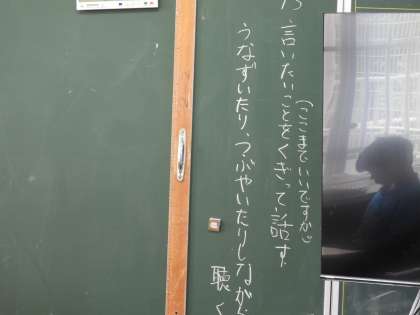 言いたいことをくぎって話す
(ここまでいいですか)
うなずいたり、つぶやいたりしながら
聴く